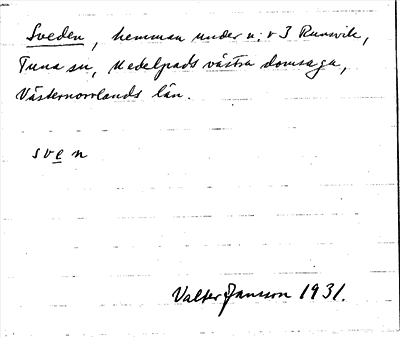 Sveden, hemman under n:r 3 Runsvik,
Tuna sn, Medelpads västra domsaga,
Västernorrlands län.
sven
Valter Jansson 1931.